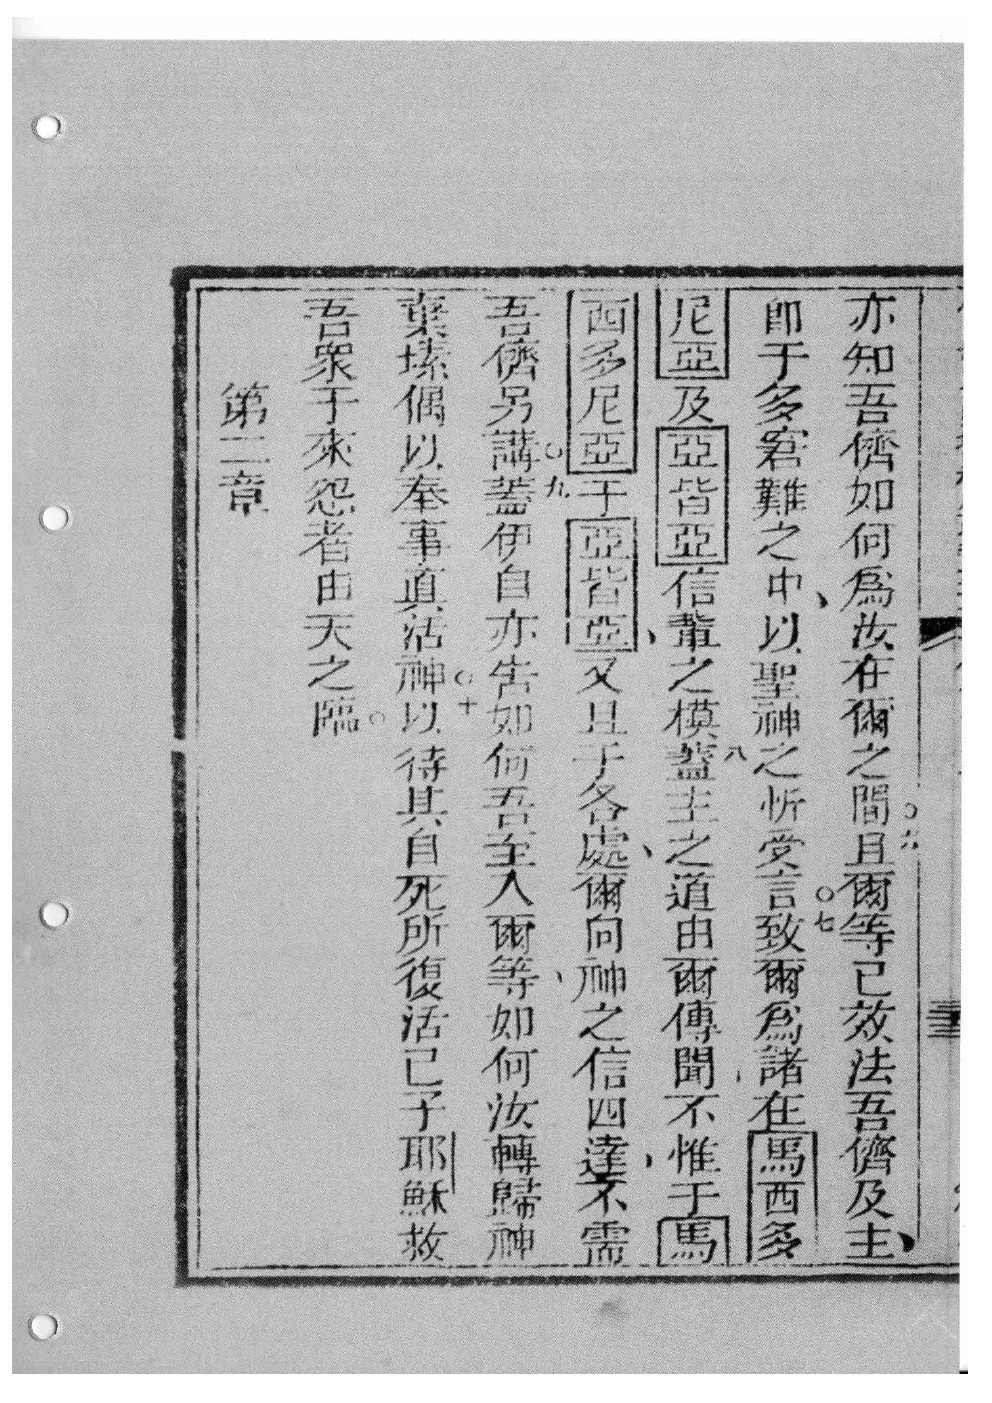 亦知吾儕如何為汝在爾之間○六且爾等已效法吾儕及主、
即于多窘難之中、以聖神之忻受言○七致爾為諸在馬西多
尼亞及亞皆亞信輩之模八蓋主之道由爾傳聞不惟于馬
西多尼亞于亞皆亞、又且于各處、爾向神之信四達、不需
吾儕另講○九蓋伊自亦告如何吾至入爾等、如何汝轉歸神
棄塑偶以奉事真活神○十以待其自死所復活己子耶穌救
吾眾于來怨者由天之臨○
第二章